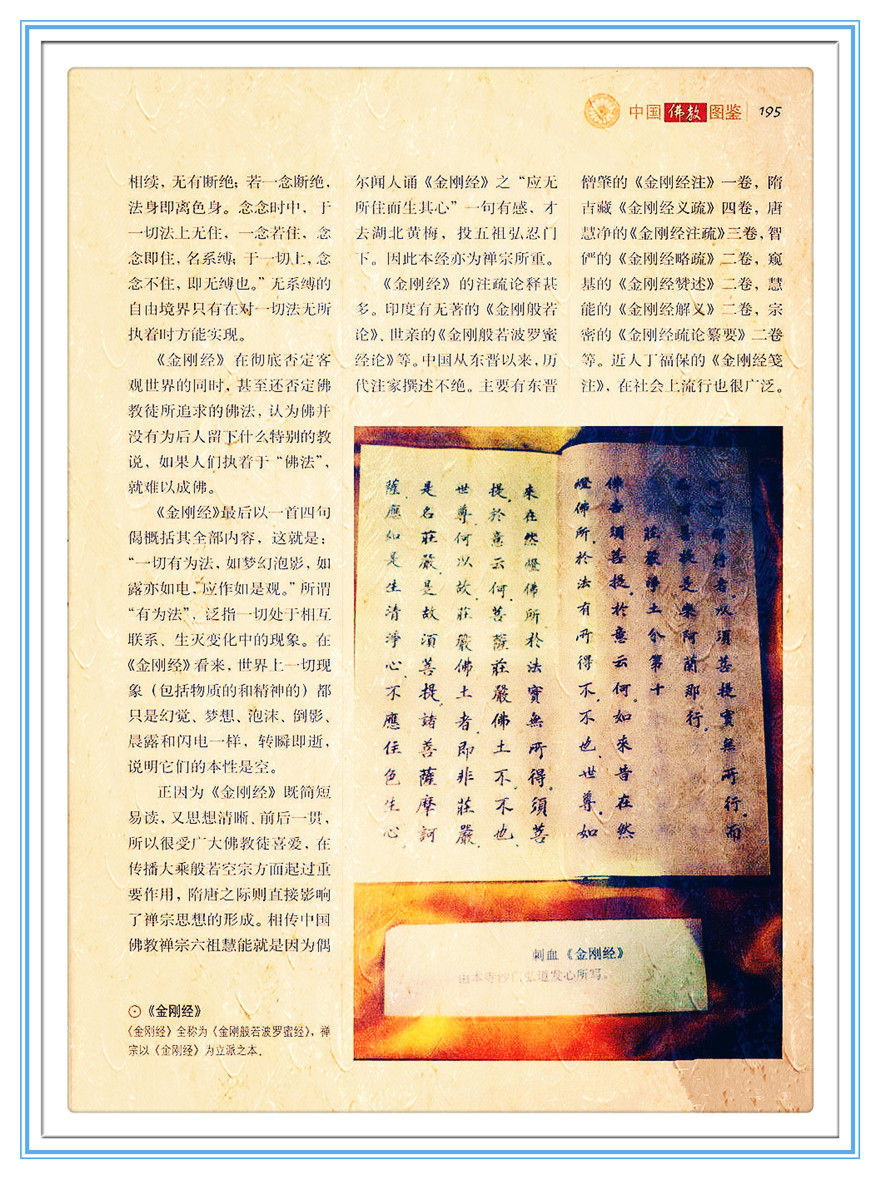 中国佛教图鉴 195
相续，无有断绝；若一念断绝，
法身即离色身。念念时中，于
一切法上无住，一念若住，念
念即住，名系缚；于一切上，念
念不住，即无缚也。”无系缚的
自由境界只有在对一切法无所
执着时方能实现。
《金刚经》在彻底否定客
观世界的同时，甚至还否定佛
教徒所追求的佛法，认为佛并
没有为后人留下什么特别的教
说，如果人们执着于“佛法”，
就难以成佛。
《金刚经》最后以一首四句
偈概括其全部内容，这就是：
“一切有为法，如梦幻泡影，如
露亦如电，应作如是观。”所谓
“有为法”，泛指一切处于相互
联系、生灭变化中的现象。在
《金刚经》看来，世界上一切现
象（包括物质的和精神的）都
只是幻觉、梦想、泡沫、倒影、
晨露和闪电一样，转瞬即逝，
说明它们的本性是空。
正因为《金刚经》既简短
易读，又思想清晰、前后一贯，
所以很受广大佛教徒喜爱，在
传播大乘般若空宗方面起过重
要作用，隋唐之际则直接影响
了禅宗思想的形成。相传中国
佛教禅宗六祖慧能就是因为偶
尔闻人诵《金刚经》之“应无
所住而生其心”一句有感，才
去湖北黄梅，投五祖弘忍门
下。因此本经亦为禅宗所重。
《金刚经》的注疏论释甚
多。印度有无著的《金刚般若
论》、世亲的《金刚般若波罗蜜
经论》等。中国从东晋以来，历
代注家撰述不绝。主要有东晋
僧肇的《金刚经注》一卷，隋
吉藏《金刚经义疏》四卷，唐
慧净的《金刚经注疏》三卷，智
俨的《金刚经略疏》二卷，窥
基的《金刚经赞述》二卷，慧
能的《金刚经解义》二卷，宗
密的《金刚经疏论纂要》二卷
等。近人丁福保的《金刚经笺
注》，在社会上流行也很广泛。
行者以须菩提實無所行而
菩提是樂阿蘭那行
莊嚴淨土分第十
佛告須菩提於意云何如來昔在然
燈佛所於法有所得不不也世尊如
來在然燈佛所於法實無所得須菩
提於意云何菩薩莊嚴佛土不不也
世尊何以故莊嚴佛土者即非莊嚴
是名莊嚴是故須菩提諸菩薩摩訶
薩應如是生清淨心不應住色生心
刺血《金刚经》
由本寺沙门弘道发心所写。
⊙《金刚经》
《金刚经》全称为《金刚般若波罗蜜经》，禅
宗以《金刚经》为立派之本。